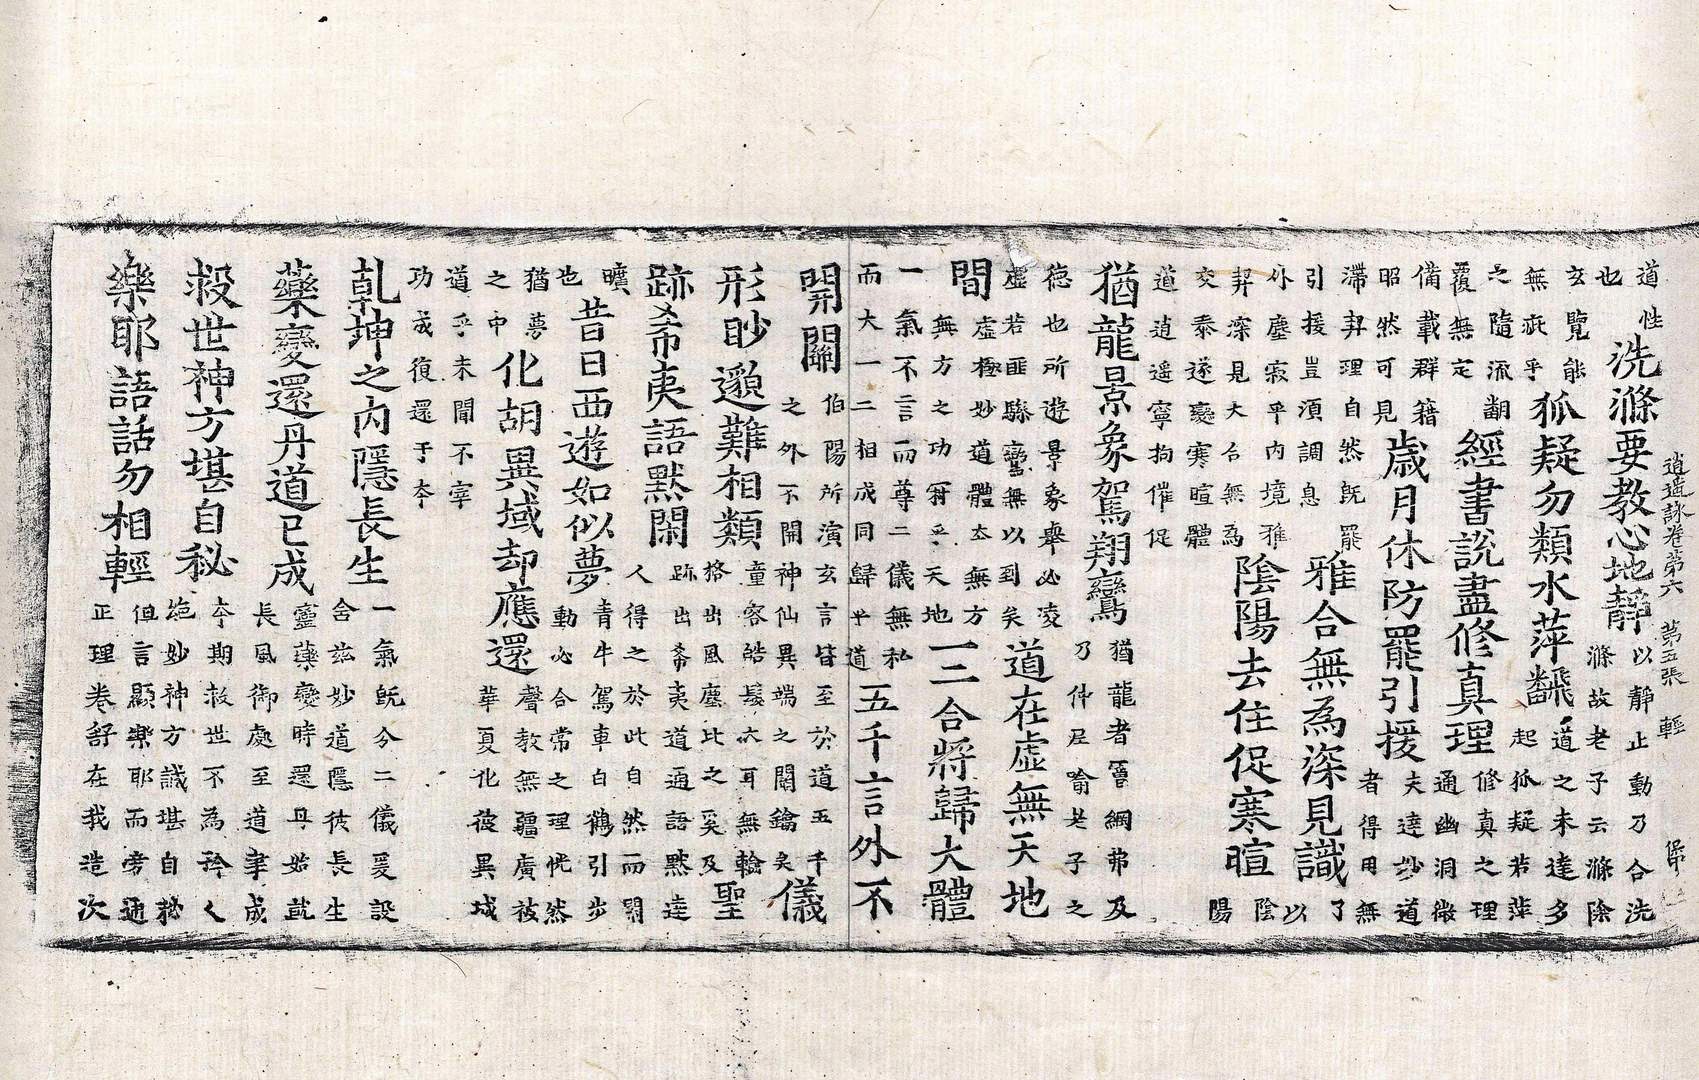 逍遥詠卷第六 第五張 輕
道性也 洗滌要教心地靜 以靜止動乃合洗滌故老子云滌除
玄覽能無疵乎 狐疑勿類水萍飜 道之未達多起狐疑若萍
之隨流翻覆無定 經書說盡修真理 修真之理通幽洞微
備載群籍昭然可見 歲月休防罷引援 夫達妙道者得用無
滯契理自然旣罷引援豈須調息 雅合無為深見識 了以
外塵寂乎內境雅契深見大合無為 陰陽去住促寒暄 陰陽
交泰遂變寒暄體道逍遥寧拘催促
猶龍景象駕翔鸞 猶龍者網弗及乃仲尼喻老子之
德也所遊景象舉必凌虛若匪驂鸞無以到矣 道在虛無天地
間 虛極妙道體本無方無方之功爾乎天地 一二合將歸大體
一氣不言而尊二儀無私而大一二相成同歸乎道 五千言外不
開闢 伯陽所演玄言皆至於道五千之外不開神仙異端之關鑰矣 儀
形眇邈難相類 童容皓鬢大耳無輪挌出風塵比之奚及 聖
跡希夷語默閑 跡出希夷道通語默達人得之於此自然而閑
曠也 昔日西遊如似夢 青牛駕車白鶴引步動必合常之理恍然
猶夢之中 化胡異域却應還 聲教無疆廣被華夏化彼異域
道乎未聞不宰功成復還于本
乾坤之內隱長生 一氣旣分二儀爰設含茲妙道隱彼長生
藥變還丹道已成 靈藥變時還丹始就長風御處至道聿成
救世神方堪自秘 本期救世不為矜人絶妙神方誠堪自秘
樂耶語話勿相輕 但言顯樂耶而旁通正理卷舒在我造次